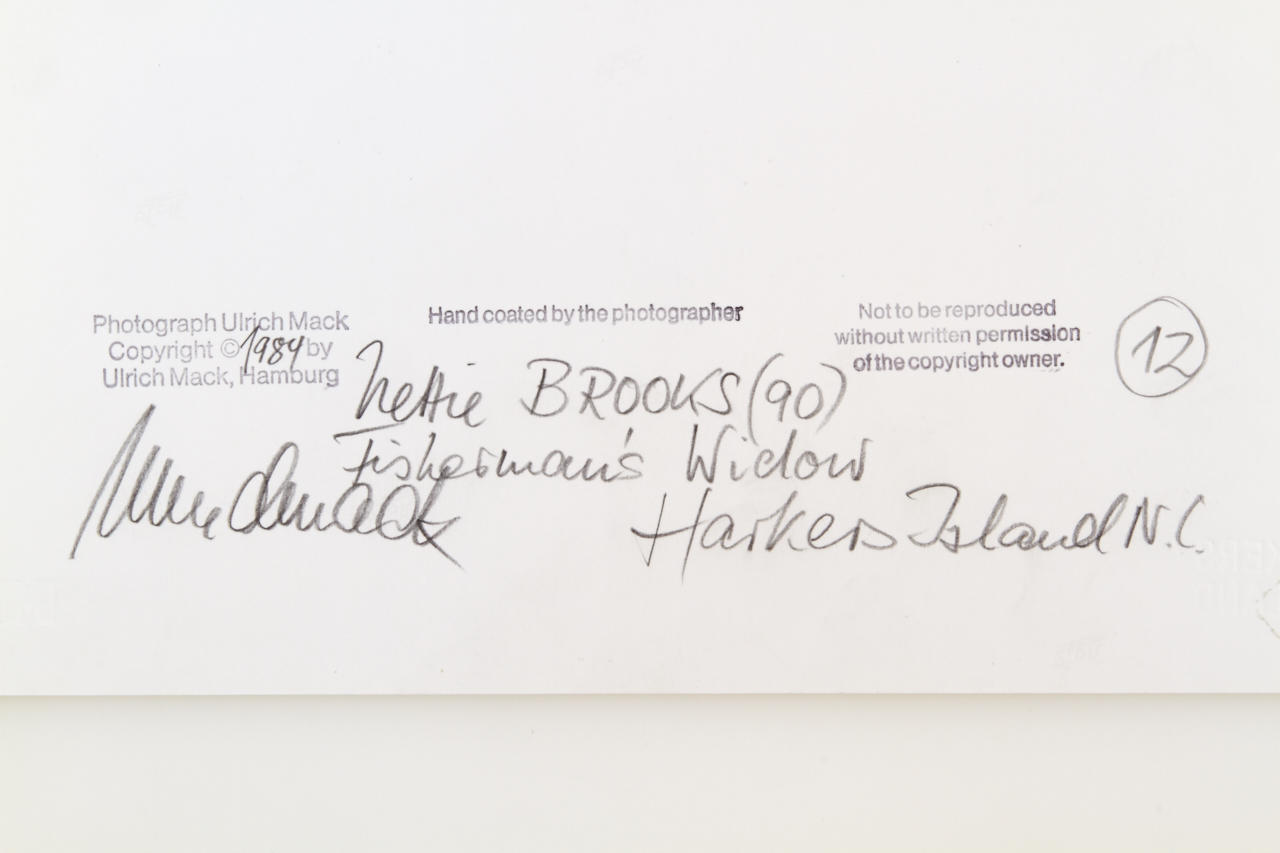 Photograph Ulrich Mack
Copyright © 1984 by
Ulrich Mack, Hamburg
Hand coated by the photographer
Not to be reproduced
without written permission
of the copyright owner.
12
Nettie BROOKS (90)
Fisherman's Widow
Harkers Island N.C.